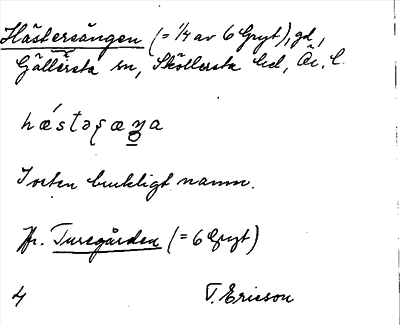 Hästersängen (= 1/4 av 6 Gryt), gd,
Gällersta sn, Sköllersta hd, Ör. l.
hǽstəʂæŋa
I orten brukligt namn.
Jfr. Turegården (= 6 Gryt)
4 T. Ericson